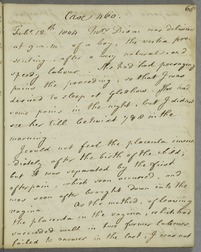 65
Case 460.
Feby. 12th 1804 Mrs Dixon was delivered
at 9 a.m. of a boy, the vertex pre-
senting, after a very natural and
speedy labour. She had had paroxysms
pains the preceding, so that I was
desired to sleep at She had
some pains in the night, but I did not
see her till betwixt 7 & 8 in the
morning.
I could not feel the placenta imme-
diately after the birth of the child;
but it was separated by the first
afterpain, which soon occurred, and
was soon after brought down into the
vagina. As the method, of leaving
the placenta in the vagina, which had
succeeded well in two former labours
failed to answer in the last, I was not